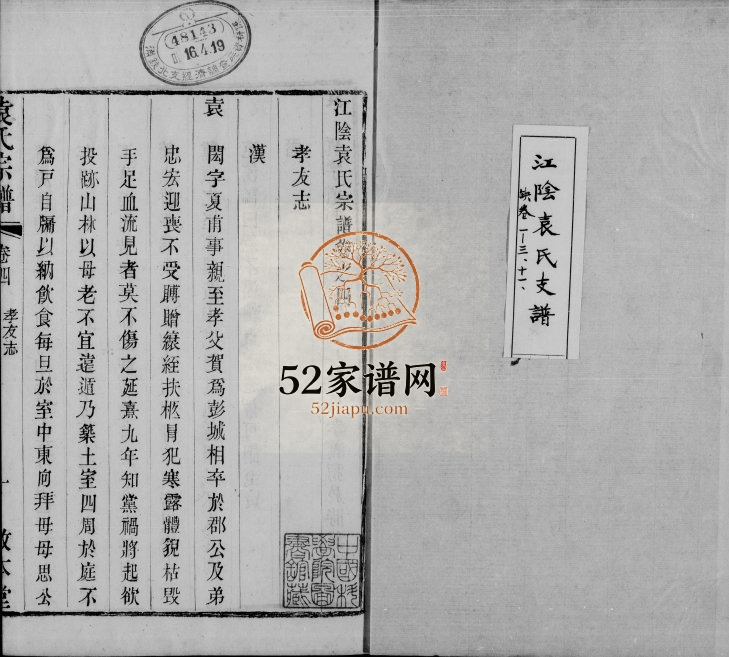 江陰袁氏支譜
缺卷一—三、十一、
48143
16.4.19
江陰袁氏宗譜卷之四
孝友志
漢
袁閎字夏甫事親至孝父賀爲彭城相卒於郡公及弟
忠宏迎喪不受賻贈縗絰扶柩冒犯寒露體貌枯毁
手足血流見者莫不傷之延熹九年知黨禍將起欲
投跡山林以母老不宜遠遁乃築土室四周於庭不
爲戸自牖以納飲食每旦於室中東向拜母母思公
袁氏宗譜
卷四
孝友志
一
敦本堂
中國科
學院圖
書館藏
52家谱网
52jiapu.com